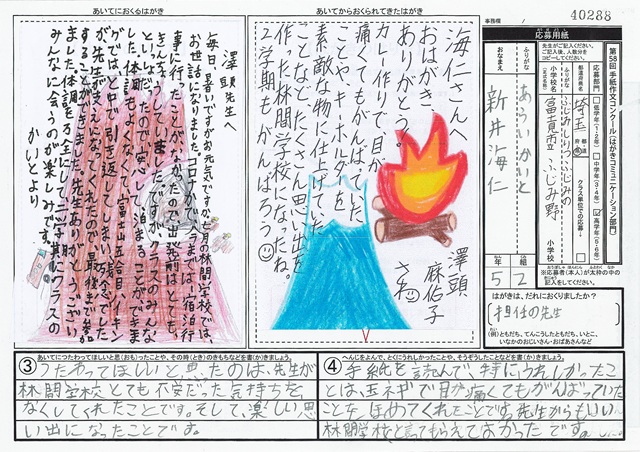 あいてにおくるはがき
澤頭先生へ
毎日、暑いですがお元気ですか。七月の林間学校では、
お世話になりました。コロナかで、今までは、宿泊行
事に行ったことがなかったので、出発前はとても、
きんちょうしていました。ですが、クラスのみんな
といっしょだったので安心して、泊まることができま
した。体調もよくなくて、富士山五合目、ハイキン
グでは、とちゅうで引き返してしまい残念でした
が、先生が支えになってくれたので、最後まで参加
することができました。先生ありがとうござい
ました。体調を万全にし、二学期にクラスの
みんなに会うのが楽しみです。
かいとより
あいてからおくられてきたはがき
海仁さんへ
おはがき、
ありがとう。
カレー作りで目が
痛くてもがんばっていた
ことや、キーホルダーを
素敵な物に仕上げていた
ことなど、たくさん思い出を
作った林間学校になったね。
2学期もがんばろう
澤頭
麻佑子
さわ
事務欄
40288
応募用紙
第58回 手紙作文コンクール「はがきコミュニケーション部門」
先生がご記入ください。
ご記入後、人数分を
コピーしてください。
応募部門
低学年(1・2年)
中学年(3・4年)
高学年(5・6年)
都道府県名
埼玉
都 道
府 県
クラス単位での応募↓
ふりがな
小学校名
ふじみしりつふじみの
富士見市立ふじみ野
小学校
ふりがな
あらいかいと
おなまえ
新井海仁
5 年
2 組
※応募者(本人)が太枠の中の
記入をしてください。
はがきは、だれにおくりましたか?
担任の先生
(例)ともだち、てんこうしたともだち、いとこ、
いなかのおじいさん・おばあさんなど
あいてにつたわってほしいと思(おも)ったことや、その時(とき)のきもちなどを書(か)きましょう。
③つたわってほしいと思ったのは、先生が
林間学校とても不安だった気持ちを
なくしてくれたことです。そして、楽しい思
い出になったことです。
へんじをよんで、とくにうれしかったことや、そうぞうしたことなどを書(か)きましょう。
④手紙を読んで、特にうれしかったこ
とは、玉ネギで目が痛くてもがんばっていた
ことを、ほめてくれたことです。先生からもいい
林間学校と言ってもらえてよかったです。